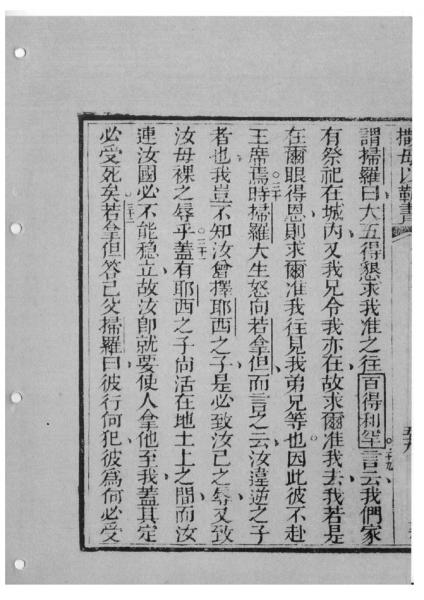 撒母以勒書
謂掃羅曰大五得懇求我准之往百得利㘸言云我們家
有祭祀在城內又我兄令我亦在故求爾准我去我若是
在爾眼得恩則求爾准我往見我弟兄等也因此彼不赴
王席焉時掃羅大生怒向若拿但而言之云汝違逆之子
者也我豈不知汝曾擇耶西之子是必致汝己之辱又致
汝母裸之辱乎蓋有耶西之子尚活在地土上之間而汝
連汝國必不能穩立故汝即就要使人拿他至我蓋其定
必受死矣若拿但答己父掃羅曰彼行何犯彼為何必受